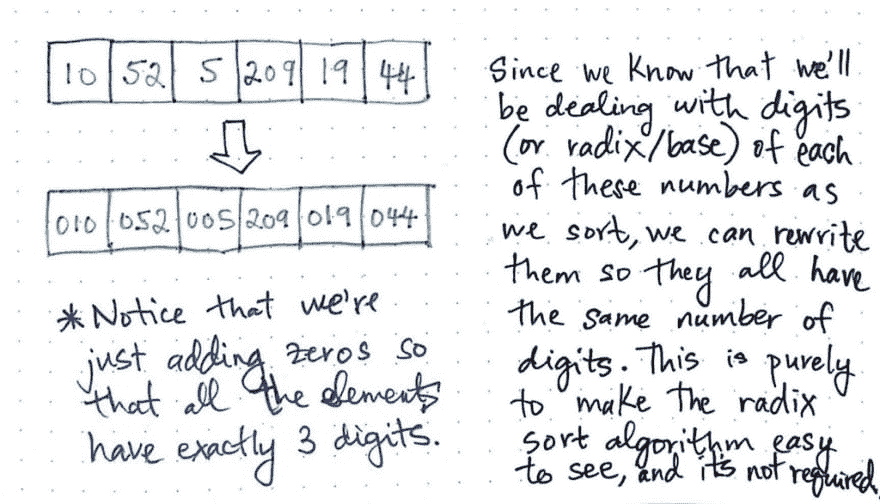 10 52 5 209 19 44
010 052 005 209 019 044
*Notice that we're
just adding zeros so
that all the elements
have exactly 3 digits.
Since we know that we'll
be dealing with digits
(or radix/base) of each
of these numbers as
we sort, we can rewrite
them so they all have
the same number of
digits. This is purely
to make the radix
sort algorithm easy
to see, and it's not required.